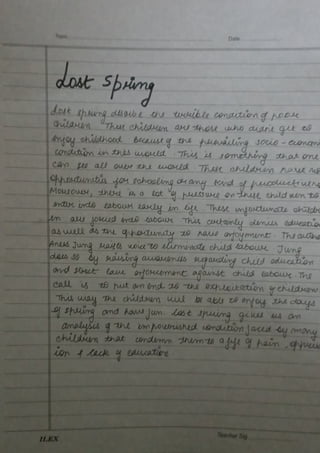 Date
Lost Spring
Lost spring describe the terrible condition of poor
children. These children are those who didn't get to
enjoy childhood because of the prevailing socio-econom
condition in this world. This is something that one
can see all over the world. These children have no
opportunities for schooling or any kind of
Moreover, there is a lot of pressure on these children to
enter into labour early in life. These unfortunate child
en are forced into labour. This certainly denies education
as well as the opportunity to have enjoyment. The author
Anees Jung wants now to eliminate child labour. Jung
does so by raising awareness regarding child education
and strict law enforcement against child labour. The
call is to put an end to the exploitation of children
This way the children will be able to enjoy the days
of spring and have fun. Lost spring gives us an
analysis of the impoverished condition faced by many
children that condemn them to a life of pain, 
ion & lack of education
ILEX
Teacher Sig